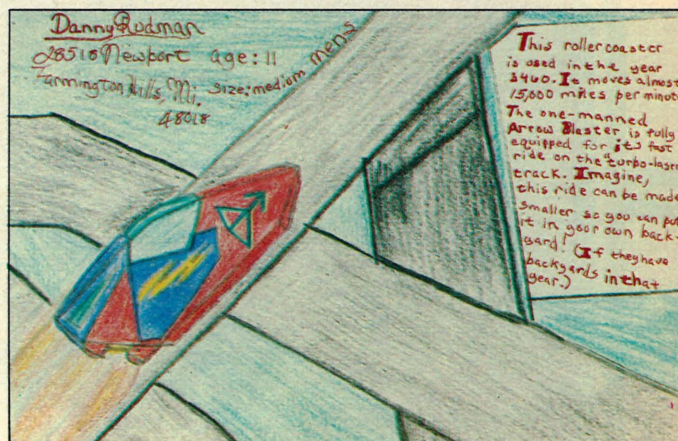 Danny Rodman
28518 Newport age: 11
Farmington Hills, Mi. size: medium mens
48018
This roller coaster
is used in the year
3400. It moves almost
15,000 miles per minute
The one-manned
Arrow Blaster is fully
equipped for its fast
ride on the "turbo-laser
track. Imagine,
this ride can be made
smaller so you can put
it in your own back-
yard! (If they have
backyards in that
year.)